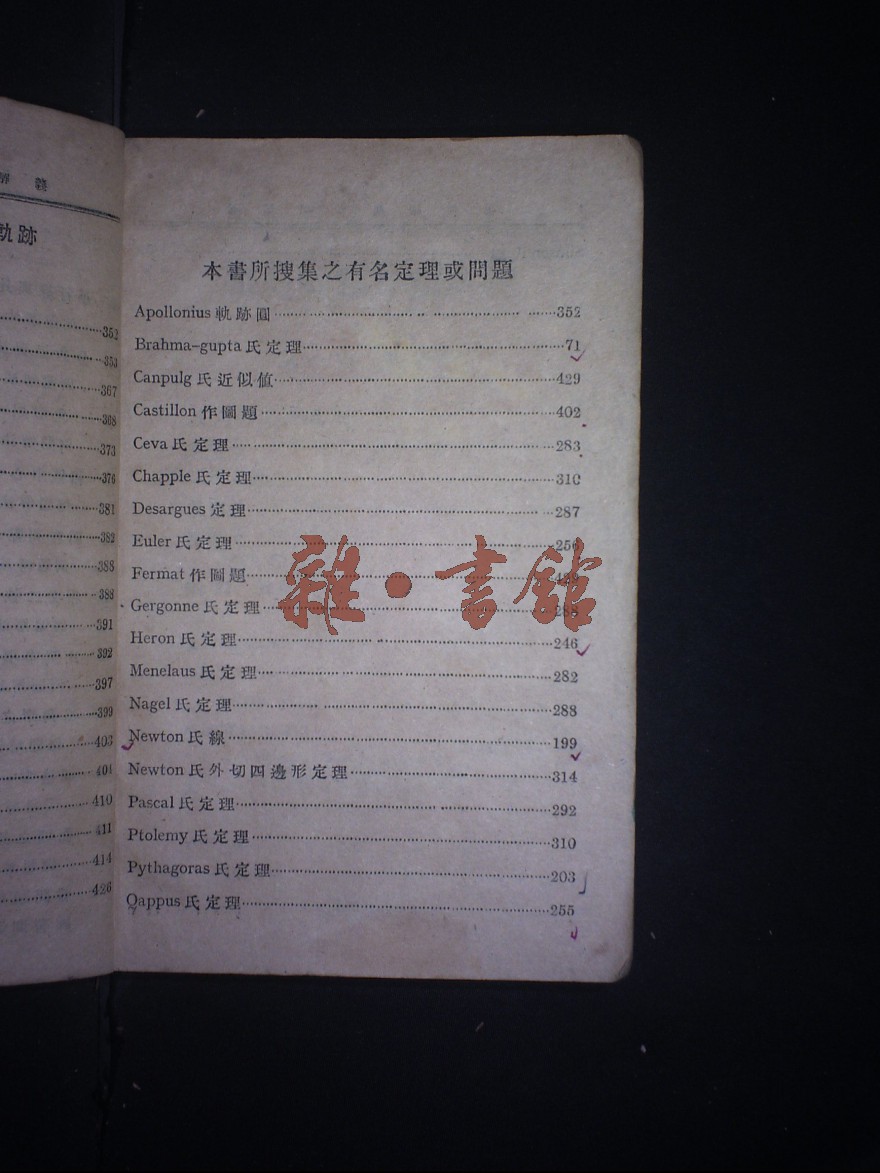 軌跡
352
353
367
368
373
376
381
382
388
388
391
392
397
399
403
404
410
411
414
426
本書所搜集之有名定理或問題
Apollonius 軌跡圓 352
Brahma-gupta 氏定理 71
Canpulg 氏近似值 429
Castillon 作圖題 402
Ceva 氏定理 283
Chapple 氏定理 310
Desargues 定理 287
Euler 氏定理 256
Fermat 作圖題
Gergonne 氏定理 288
Heron 氏定理 246
Menelaus 氏定理 282
Nagel 氏定理 288
Newton 氏線 199
Newton 氏外切四邊形定理 314
Pascal 氏定理 292
Ptolemy 氏定理 310
Pythagoras 氏定理 203
Qappus 氏定理 255
雜·書館